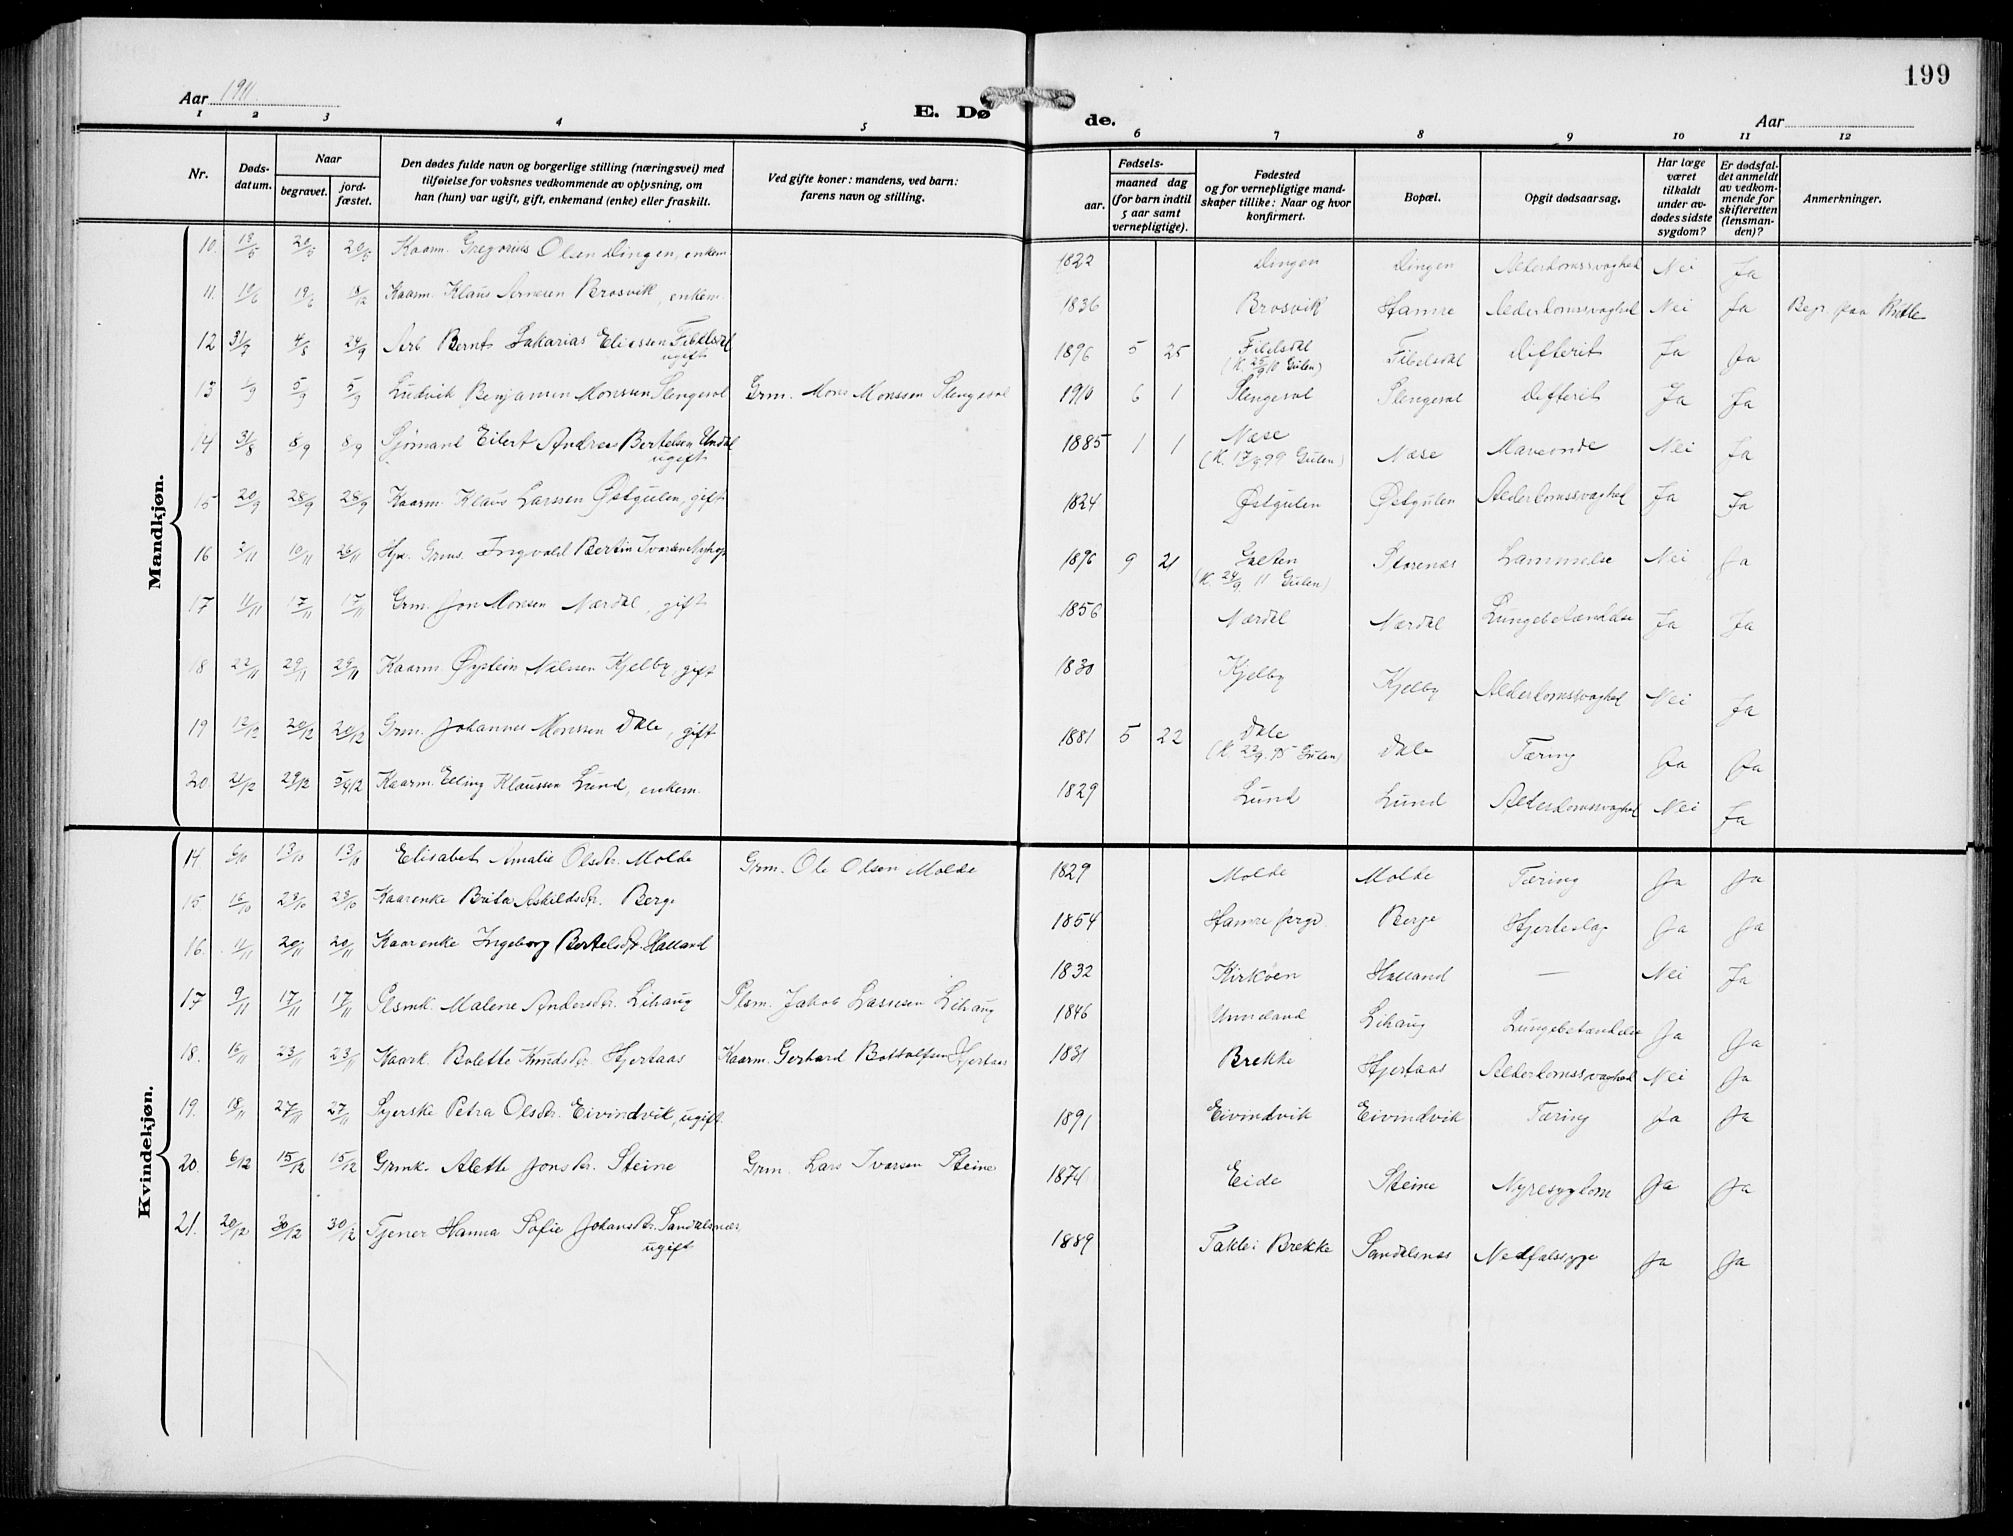 199
Aar 1911
E. Dø
de.
Aar
1 2 3 4 5 6 7 8 9 10 11 12
Nr.
Døds-
datum.
Naar
begravet.
jord-
fæstet.
Den dødes fulde navn og borgerlige stilling (næringsvei) med
tilføielse for voksnes vedkommende av oplysning, om
han (hun) var ugift, gift, enkemand (enke) eller fraskilt.
Ved gifte koner: mandens, ved barn:
farens navn og stilling.
Fødsels-
aar.
maaned dag
(for barn indtil
5 aar samt
vernepligtige).
Fødested
og for vernepligtige mand-
skaper tillike: Naar og hvor
konfirmert.
Bopæl.
Opgit dødsaarsag.
Har læge
været
tilkaldt
under av-
dødes sidste
sygdom?
Er dødsfal-
det anmeldt
av vedkom-
mende for
skifteretten
(lensman-
den)?
Anmerkninger.
Mandkjøn.
10. 13/5 20/5 20/5 Kaarm. Gregorius Olsen Dingen, enkem. 1822 Dingen Dingen Alderdomssvaghed Nei Ja
11. 10/6 19/6 18/12 Kaarm. Klaus Arnesen Brosvik, enkem. 1836 Brosvik Hamre Alderdomssvaghed Nei Ja Begr. paa
12 31/7 4/8 24/9 Arb Bernt Sakarias Eliessen Fibelsdal 1896 5 25 Fibelsdal Fibelsdal Difterit Ja Ja
ugift (K. 25/9 10 Gulen)
13 1/9 5/9 5/9 Ludvik Benjamin Monssen Slengesol Grm. Mons Monssen Slengesol 1910 6 1 Slengesol Slengesol Difterit Ja Ja
14 31/8 8/9 8/9 Sjømand Eilert Andreas Bertelsen Undal 1885 1 1 Næse Næse Maveonde Nei Ja
ugift (K. 17/9 99 Gulen)
15 20/9 28/9 28/9 Kaarm. Klaus Larssen Østgulen, gift 1824 Østgulen Østgulen Alderdomssvaghed Ja Ja
16 3/11 10/11 26/11 Grms. Ingvald Bertin Ivarsen 1896 9 21 Storenæs Lammelse Nei Ja
(K. 24/9 11 Gulen)
17 11/11 17/11 17/11 Grm. Jon Monsen Nærdal, gift 1856 Nærdal Nærdal Lungebetændelse Ja Ja
18 22/11 29/11 29/11 Kaarm Øystein Nilssen Kjelby, gift 1830 Kjelby Kjelby Alderdomssvaghed Nei Ja
19 12/12 20/12 20/12 Grm. Johannes Monssen Dale, gift 1881 5 22 Dale Dale Tæring Ja Ja
(K. 22/9. 95 Gulen)
20 21/12 29/12 Kaarm. Elling Klaussen Lund, enkem. 1829 Lund Lund Alderdomssvaghed Nei Ja
Kvindekjøn.
14. 6/10 13/10 13/10 Elisabet Amalie Olsdtr. Molde Grm. Ole Olsen Molde 1829 Molde Molde Tæring Ja Ja
15. 16/10 23/10 23/10 Kaarenke Brita Askildsdtr. Berge 1854 Hamre prgd Berge Hjerteslag Ja Ja
16. 11/11 20/11 20/11 Kaarenke Ingeborg Bertelsdtr. Halland 1832 Kirkøen Halland — Nei Ja
17 9/11 17/11 17/11 Plsmk. Malene Andersdtr. Lihaug Plsm. Jakob Lassesen Lihaug 1846 Unneland Lihaug Lungebetændelse Ja Ja
18. 16/11 23/11 23/11 Kaark. Bolette Knudsdtr. Hjertaas Kaarm. Gerhard Bottolfsen Hjertaas 1831 Brekke Hjertaas Alderdomssvaghed Nei Ja
19. 18/11 27/11 27/11 Syerske Petra Olsdtr. Eivindvik, ugift 1891 Eivindvik Eivindvik Tæring Ja Ja
20. 6/12 15/12 15/12 Grmk. Alette Jonsdtr. Steine Grm. Lars Ivarsen Steine 1874 Eide Steine Nyresygdom Ja Ja
21. 20/12 30/12 30/12 Tjener Hanna Sofie Johansdtr. Sandalsnæs 1889 Takle i Brekke Sandalsnæs Nedfalssyge Ja Ja
ugift